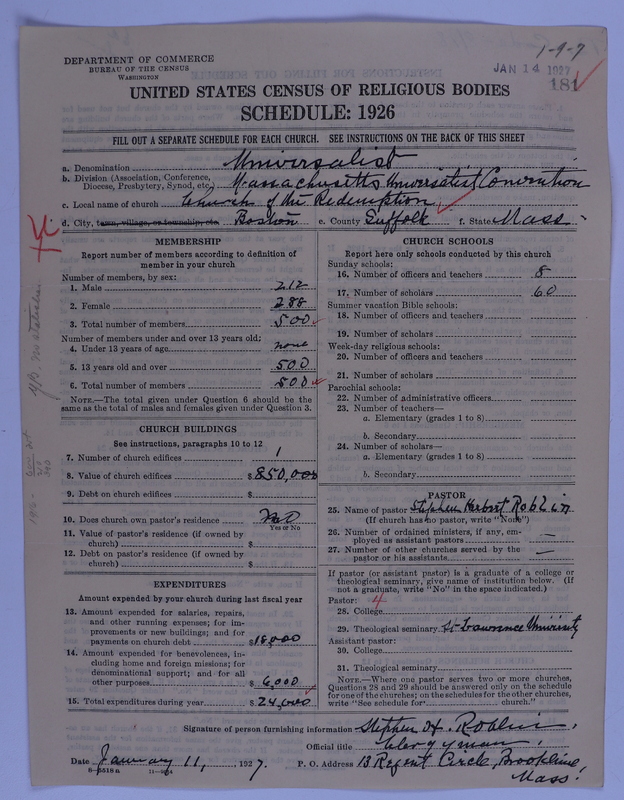 1-9-7
DEPARTMENT OF COMMERCE
BUREAU OF THE CENSUS
WASHINGTON
JAN 14 1927
181
UNITED STATES CENSUS OF RELIGIOUS BODIES
SCHEDULE: 1926
FILL OUT A SEPARATE SCHEDULE FOR EACH CHURCH. SEE INSTRUCTIONS ON THE BACK OF THIS SHEET
a. Denomination Universalist
b. Division (Association, Conference, Diocese, Presbytery, Synod, etc.) Massachusetts Universalist Convention
c. Local name of church Church of the Redemption
d. City, town, village, or township, etc. Boston e. County Suffolk f. State Mass
MEMBERSHIP
Report number of members according to definition of
member in your church
Number of members, by sex:
1. Male 212
2. Female 288
3. Total number of members 500
Number of members under and over 13 years old:
4. Under 13 years of age none
5. 13 years old and over 500
6. Total number of members 500
NOTE.—The total given under Question 6 should be
same as the total of males and females given under Question 3.
CHURCH BUILDINGS
See instructions, paragraphs 10 to 12
7. Number of church edifices 1
8. Value of church edifices $ 850,000
9. Debt on church edifices $
10. Does church own pastor's residence No
Yes or No
11. Value of pastor's residence (if owned by
church) $
12. Debt on pastor's residence (if owned by
church) $
EXPENDITURES
Amount expended by your church during last fiscal year
13. Amount expended for salaries, repairs,
and other running expenses; for im-
provements or new buildings; and for
payments on church debt $ 18,000
14. Amount expended for benevolences, in-
cluding home and foreign missions; for
denominational support; and for all
other purposes $ 6,000
15. Total expenditures during year $ 24,000
CHURCH SCHOOLS
Report here only schools conducted by this church
Sunday schools:
16. Number of officers and teachers 8
17. Number of scholars 60
Summer vacation Bible schools:
18. Number of officers and teachers
19. Number of scholars
Week-day religious schools:
20. Number of officers and teachers
21. Number of scholars
Parochial schools:
22. Number of administrative officers
23. Number of teachers—
a. Elementary (grades 1 to 8)
b. Secondary
24. Number of scholars—
a. Elementary (grades 1 to 8)
b. Secondary
PASTOR
25. Name of pastor Stephen Herbert Roblin
(If church has no pastor, write "None")
26. Number of ordained ministers, if any, em-
ployed as assistant pastors —
27. Number of other churches served by the
pastor or his assistants —
If pastor (or assistant pastor) is a graduate of a college or
theological seminary, give name of institution below. (If
not a graduate, write "No" in the space indicated.)
Pastor: 4
28. College
29. Theological seminary St Lawrence University
Assistant pastor:
30. College
31. Theological seminary
NOTE.—Where one pastor serves two or more churches,
Questions 28 and 29 should be answered only on the schedule
for one of the churches; on the schedules for the other churches,
write "See schedule for church."
Signature of person furnishing information Stephen H. Roblin,
Official title Clergyman,
Date January 11, 1927. P. O. Address 13 Regent Circle, Brookline,
Mass.
8-5518 a